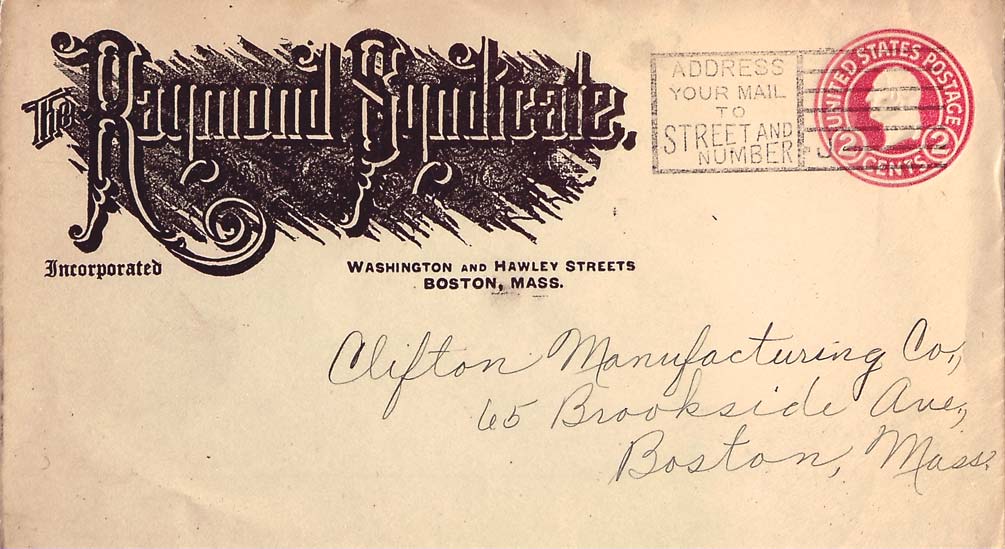 The Raymond Syndicate,
Incorporated
WASHINGTON AND HAWLEY STREETS
BOSTON, MASS.
ADDRESS
YOUR MAIL
TO
STREET AND
NUMBER
UNITED STATES POSTAGE
2 CENTS 2
Clifton Manufacturing Co.,
65 Brookside Ave.,
Boston, Mass.